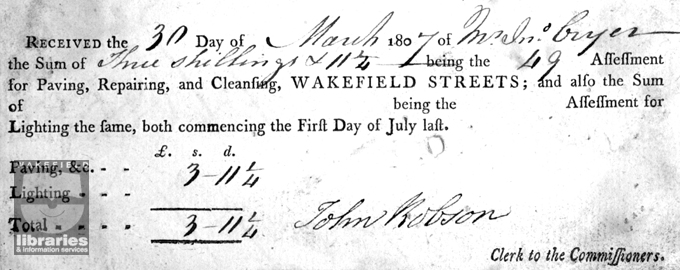 RECEIVED the 30 Day of March 1807 of Mr. Jno. Cryer
the Sum of Three shillings & 11 1/4 being the 49 Aſſeſſment
for Paving, Repairing, and Cleanſing, WAKEFIELD STREETS; and alſo the Sum
of being the Aſſeſſment for
Lighting the ſame, both commencing the Firſt Day of July laſt.
£. s. d.
Paving, &c. - - 3 - 11 1/4
Lighting - - -
Total - - - - - 3 - 11 1/4
John Robson
Clerk to the Commiſſioners.
WAKEFIELD
libraries
& information services